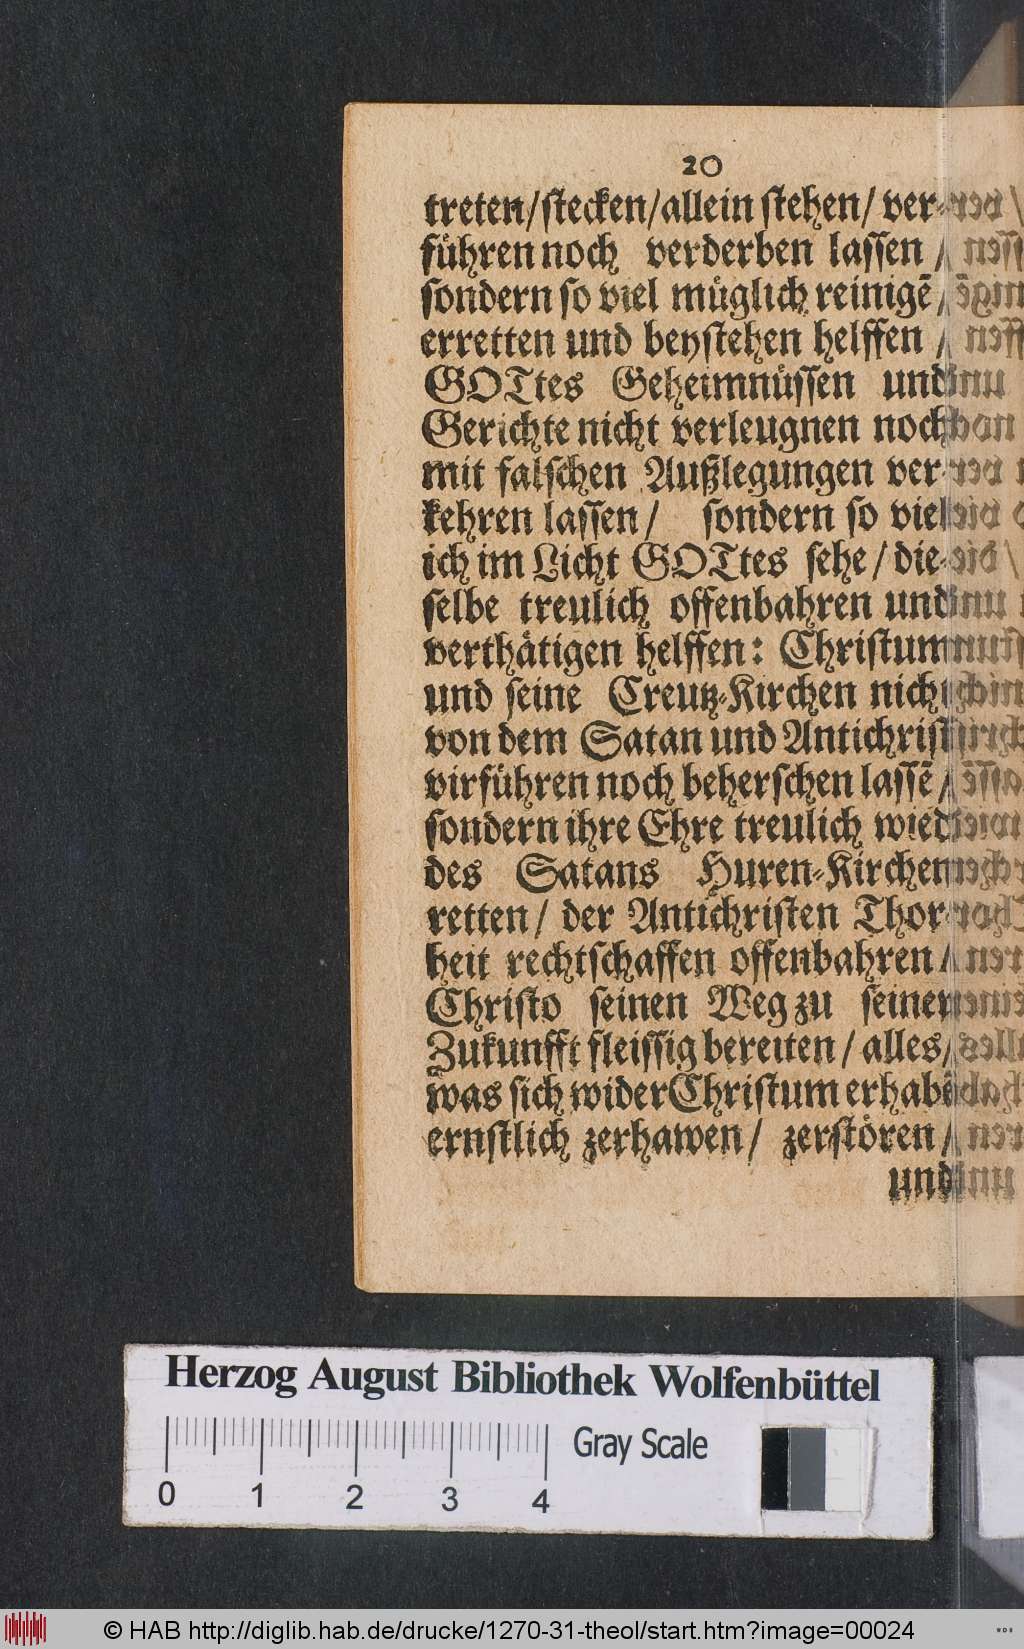 20
treten/stecken/allein stehen/ ver-
führen noch verderben lassen /
sondern so viel müglich reinigē /
erretten und beystehen helffen /
GOTtes Geheimnüssen und
Gerichte nicht verleugnen noch
mit falschen Außlegungen ver-
kehren lassen/ sondern so viel
ich im Licht GOTtes sehe / die-
selbe treulich offenbahren und
verthätigen helffen: Christum
und seine Creutz-Kirchen nicht
von dem Satan und Antichrist
virführen noch beherschen lassē /
sondern ihre Ehre treulich wied
des Satans Huren-Kirchen
retten/ der Antichristen Thor-
heit rechtschaffen offenbahren /
Christo seinen Weg zu seiner
Zukunfft fleissig bereiten / alles/
was sich wider Christum erhabē
ernstlich zerhawen/ zerstören /
und
Herzog August Bibliothek Wolfenbüttel
0 1 2 3 4
Gray Scale
© HAB http://diglib.hab.de/drucke/1270-31-theol/start.htm?image=00024